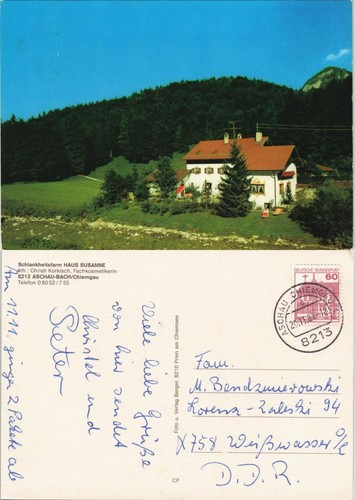 Schlankheitsfarm HAUS SUSANNE
Inh.: Christl Korkisch, Fachkosmetikerin
8213 ASCHAU-BACH/Chiemgau
Telefon 0 80 52 / 7 55
Viele liebe Grüße
von hier sendet
Christel und
Peter
Am 11.11. gingen 2 Pakete ab
Foto u. Verlag Berger, 8210 Prien am Chiemsee
CP
DEUTSCHE BUNDESPOST
60
ASCHAU, CHIEMGAU
8213
Fam.
M. Bendzmerowski
Lorenz-Zaleski 94
X758 Weißwasser O/L
D.D.R.